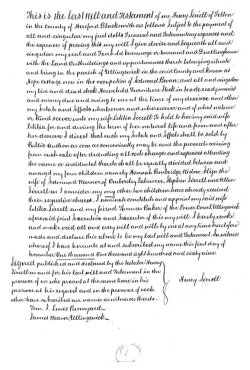 This is the Last Will and Testament of me Henry Sirrell of Felton
in the County of Hereford Blacksmith as follows Subject to the payment of
all and singular my just debts Funeral and Testamentary expences and
the expences of proving this my will I give devise and bequeath all and
singular my real and Freehold messuage or tenement and
with the Land Outbuildings and appurtenances thereto belonging situate
and being in the parish of Ullingswick in the said County and known as
Cottage now in the occupation of Edward and all and singular
my live and dead stock Household Furniture Book or other debts moneys
and money due and owing to me at the time of my decease and other
my Estate and Effects whatsoever and wheresoever and of what nature
or kind soever unto my wife Sirrell To hold to her my said wife
for and during the term of her natural life and from and after
her decease I direct that such my Estate and Effects shall be sold by
Public Auction as soon as conveniently may be and the proceeds arising
from such sales after deducting all costs charges and expences attending
the same or incidental thereto shall be equally divided between and
amongst my four children namely Hannah Widow the
wife of of Labourer Stephen Sirrell and
Sirrell as I consider my my other two children have already received
their respective shares I nominate constitute and appoint my said wife
Sirrell and my Friend Thomas Barker of the Ullingswick
aforesaid joint Executrix and Executor of this my will I hereby revoke
and make void all and every will and wills by me at any time heretofore
made and declare this alone to be my last will and Testament In witness
whereof I have hereunto set and subscribed my name this first day of
November One thousand One thousand eight hundred and sixty nine
Signed published and declared by the testator Henry
Sirrell as and for his last will and Testament in the
presence of us who present at the same time in his
presence at his request and in the presence of each
other have subscribed our names as witnesses thereto
Henry Sirrell
Thos. J. Lewis Bromyard
James Ullingswick